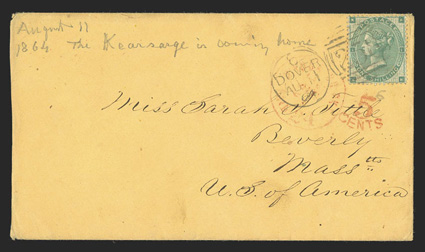 August 11
1864 The Kearsarge is coming home
POSTAGE
C
DOVER
AU 11
5
CENTS
Miss Sarah
Beverly
Mass tts
U.S. of America